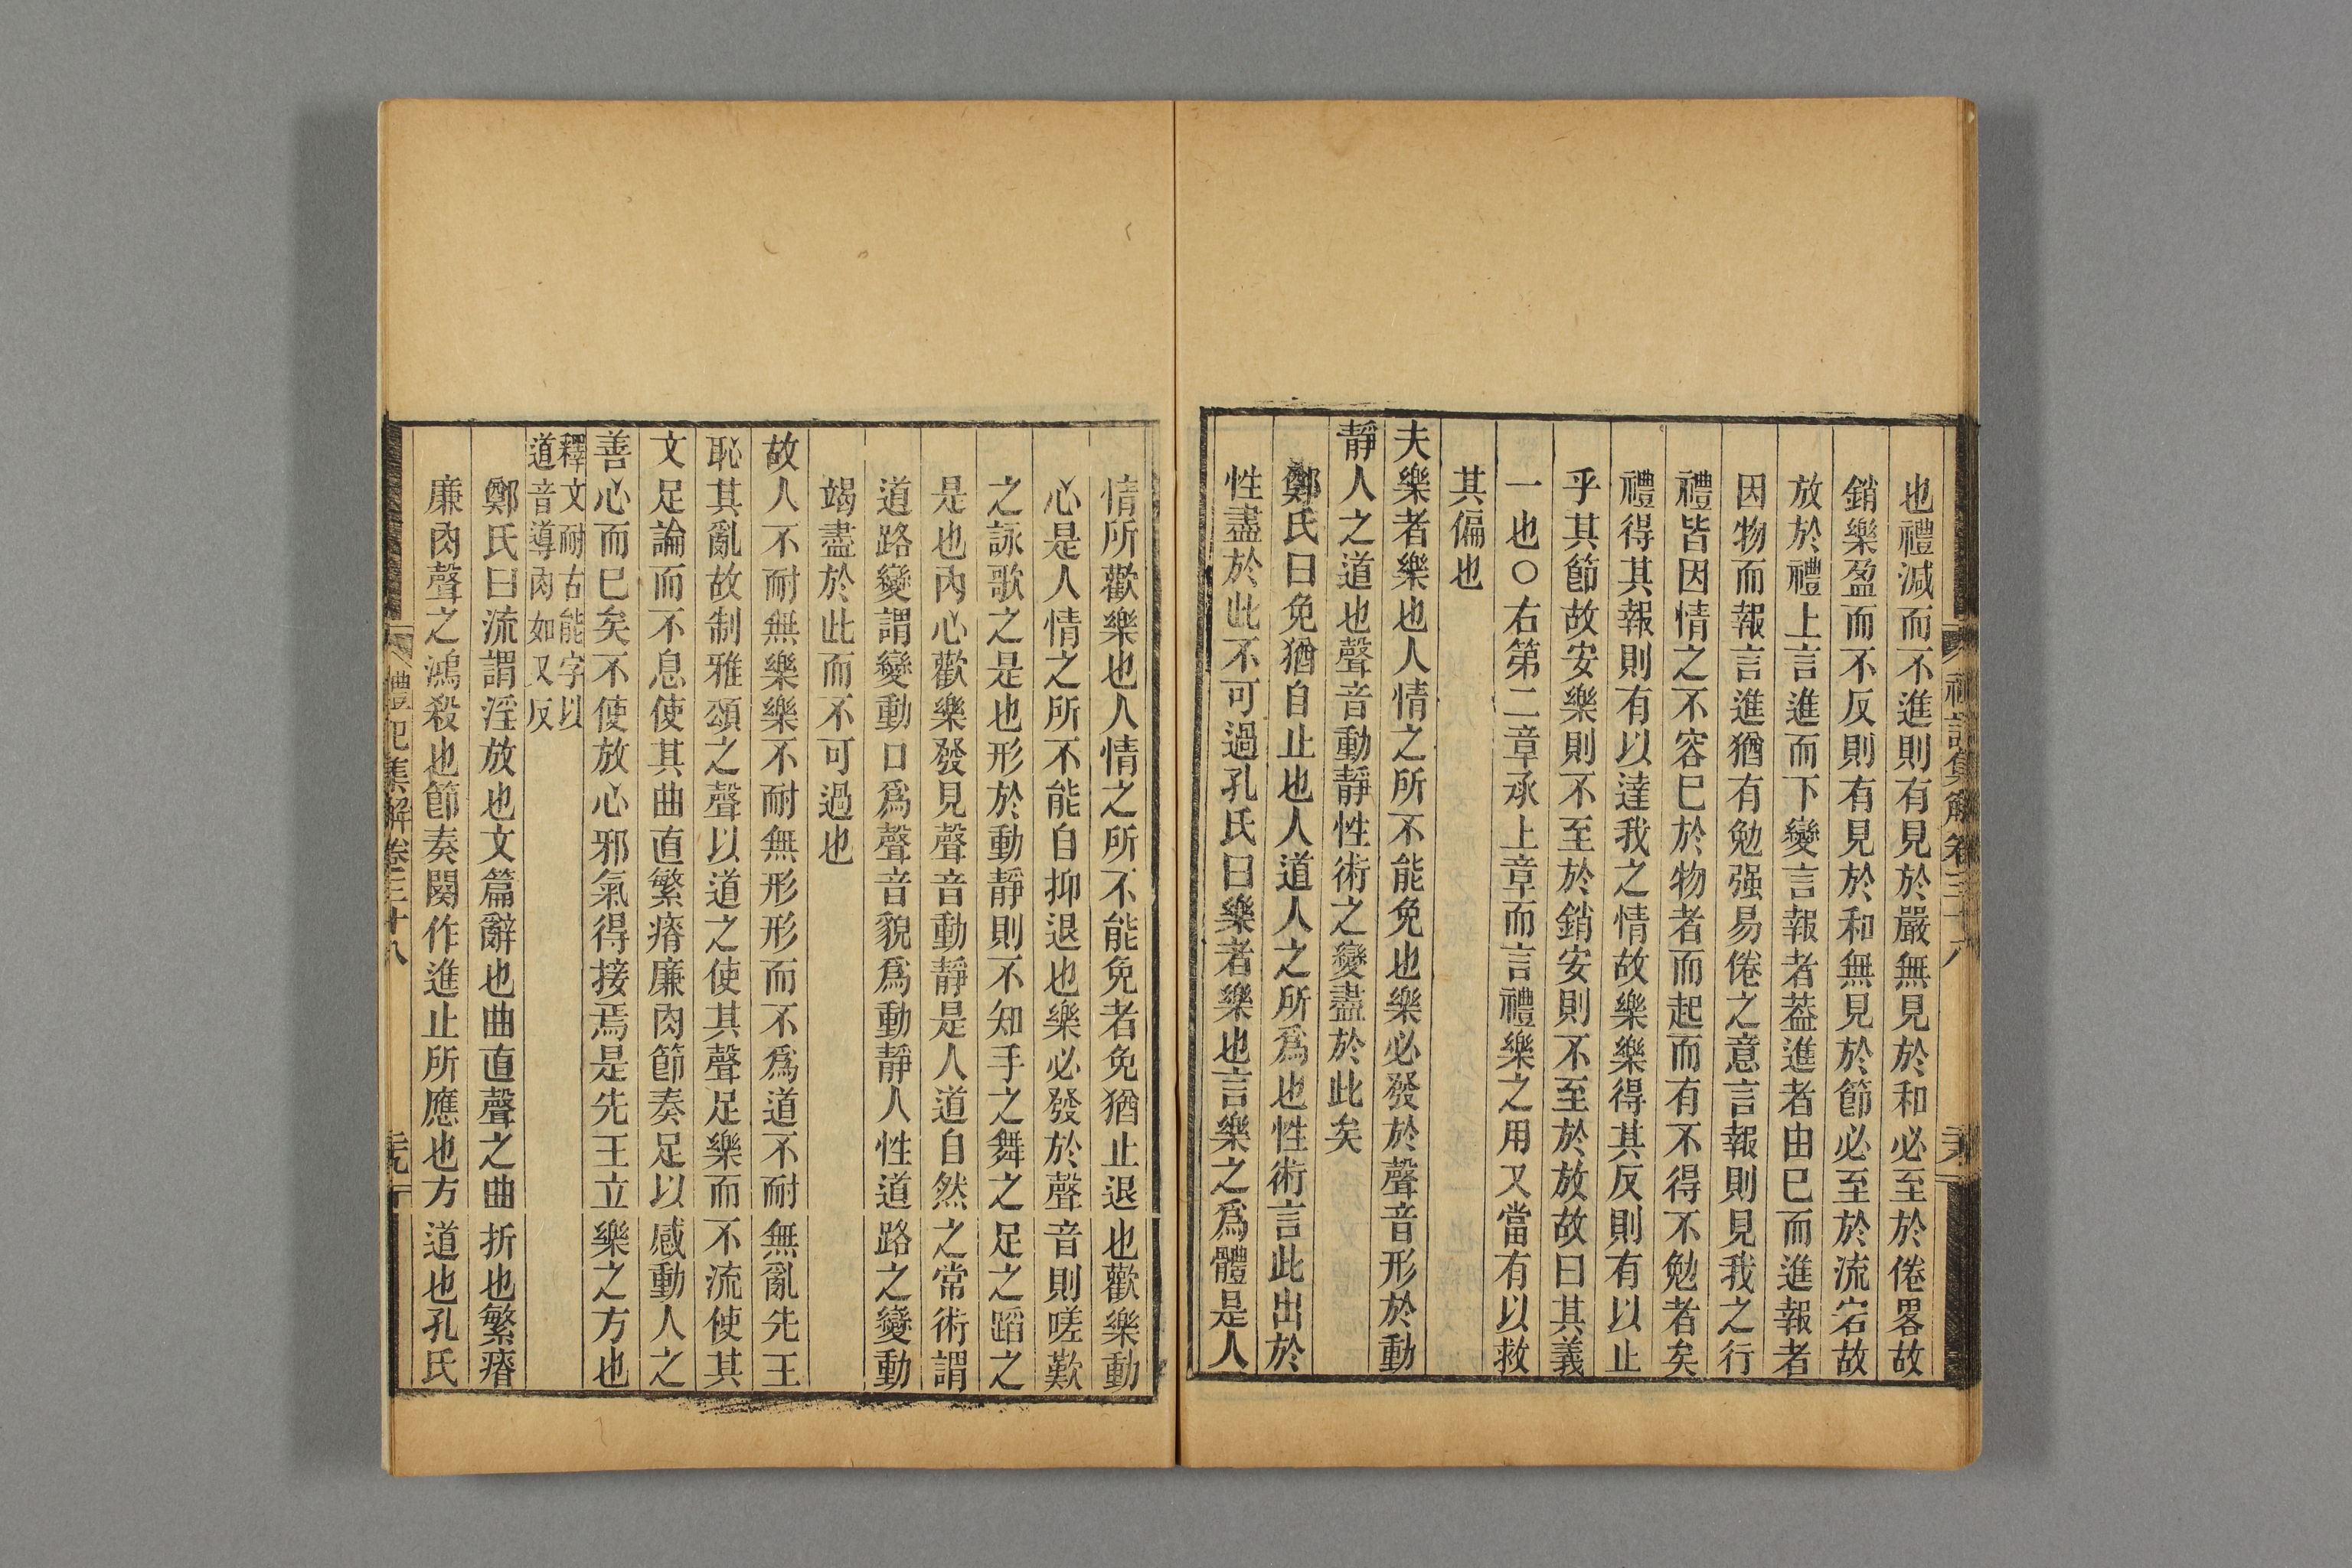 禮記集解卷三十八
也禮減而不進則有見於嚴無見於和必至於倦畧故
銷樂盈而不反則有見於和無見於節必至於流宕故
放於禮上言進而下變言報者葢進者由已而進報者
因物而報言進猶有勉强易倦之意言報則見我之行
禮皆因情之不容已於物者而起而有不得不勉者矣
禮得其報則有以達我之情故樂樂得其反則有以止
乎其節故安樂則不至於銷安則不至於放故曰其義
一也○右第二章承上章而言禮樂之用又當有以救
其偏也
夫樂者樂也人情之所不能免也樂必發於聲音形於動
靜人之道也聲音動靜性術之變盡於此矣
鄭氏曰免猶自止也人道人之所爲也性術言此出於
性盡於此不可過孔氏曰樂者樂也言樂之爲體是人
情所歡樂也人情之所不能免者免猶止退也歡樂動
心是人情之所不能自抑退也樂必發於聲音則嗟歎
之詠歌之是也形於動靜則不知手之舞之足之蹈之
是也內心歡樂發見聲音動靜是人道自然之常術謂
道路變謂變動口爲聲音貌爲動靜人性道路之變動
竭盡於此而不可過也
故人不耐無樂樂不耐無形形而不爲道不耐無亂先王
恥其亂故制雅頌之聲以道之使其聲足樂而不流使其
文足論而不息使其曲直繁瘠廉肉節奏足以感動人之
善心而巳矣不使放心邪氣得接焉是先王立樂之方也
釋文耐古能字以
道音導肉如又反
鄭氏曰流謂淫放也文篇辭也曲直聲之曲折也繁瘠
廉肉聲之鴻殺也節奏闋作進止所應也方道也孔氏
禮記集解卷三十八